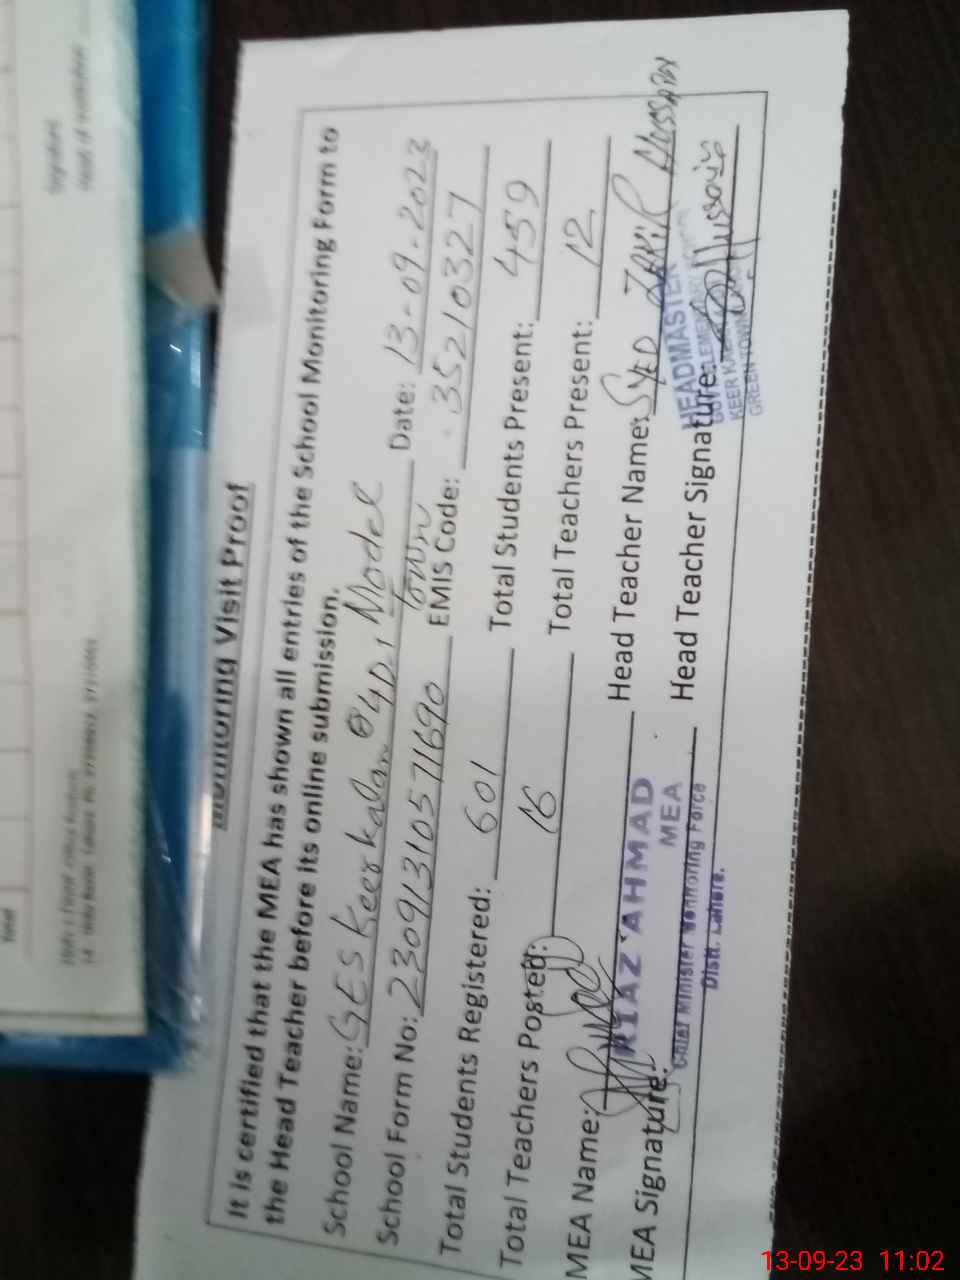 Monitoring Visit Proof
It is certified that the MEA has shown all entries of the School Monitoring Form to
the Head Teacher before its online submission.
School Name: GES Keerkalan @ 4D.1 Model Town Date: 13-09-2023
School Form No: 2309131057116 90 EMIS Code: 35210327
Total Students Registered: 601 Total Students Present: 459
Total Teachers Posted: 16 Total Teachers Present: 12
MEA Name: RIAZ AHMAD Head Teacher Name: SYED ZAKIR HUSSAIN
MEA
MEA Signature: Head Teacher Signature:
Chief Minister Monitoring Force
Distt. Lahore.
HEADMASTER
GOVT. ELEMENTARY
KEER KALAN
GREEN TOWN
Signature
Head of Institution
Total
13-09-23 11:02